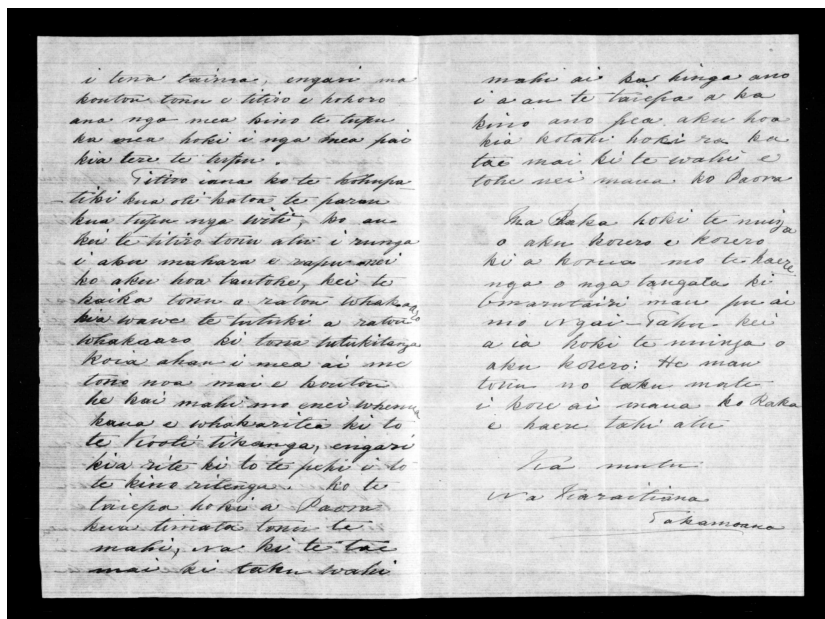 i tena taima, engari ma
koutou tonu e titiro e hohoro
ana nga mea kino te tupu
ka wiea hoki i nga mea pai
kia tere te tupu.
Titiro iana ko te
tiki kua oti katoa te parau
kua tupu nga witi, ko au
kei te titiro tonu atu i runga
i aku mahara e rapu nei
ko aku hoa tautohe, kei te
kaika tonu a ratou whakaaro
kia wawe te tutuki a ratou
whakaaro ki tona tutukitanga
koia ahau i mea ai me
tono noa mai e koutou
he kai mahi mo enei whenua
kaua e whakaritea ki to
te Kooti tikanga, engari
kia rite ki to te pehi i to
te kino ritenga. Ko te
taiepa hoki a Paora
kua timata tonu te
mahi, na ki te tae
mai ki taku wahi
mahi ai ka hinga ano
i a au te taiepa a ka
kino ano pea aku hoa
kia kotahi hoki ra ka
tae mai ki te wahi e
tohe nei maua ko Paora
Ma Raka hoki te nuinga
o aku korero e korero
ki a korua mo te haere
nga o nga tangata ki
Omarutairi mau pu ai
mo Ngai-Tahu kei
a ia hoki te nuinga o
aku korero: He mau
tonu no taku mate
i kore ai maua ko Raka
e haere tahi atu
Kia mutu
Na Karaitiana
Takamoana